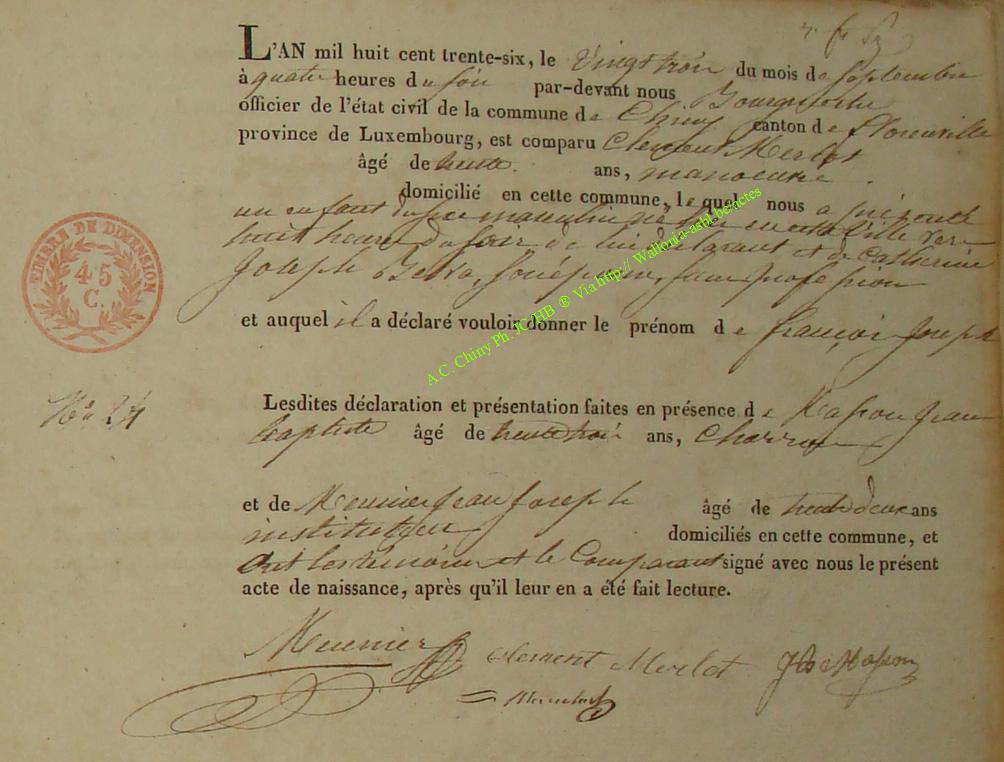 L'AN mil huit cent trente-six, le vingt trois du mois de septembre
à quatre heures du soir par-devant nous Bourgmestre
officier de l'état civil de la commune de Chiny canton de Florenville
province de Luxembourg, est comparu Clement Merlot
âgé de trente ans, manoeuvre
domicilié en cette commune, lequel nous a présenté
un enfant du sexe masculin né hier en cette ville vers
huit heures du soir de lui déclarant et de Catherine
Joseph son épouse, sans profession
et auquel il a déclaré vouloir donner le prénom de françois Joseph
Lesdites déclaration et présentation faites en présence de Masson Jean
N° 24
baptiste âgé de trente trois ans, Charron
et de Meunier Jean Joseph âgé de trente deux ans
instituteur domiciliés en cette commune, et
ont les témoins et le Comparant signé avec nous le présent
acte de naissance, après qu'il leur en a été fait lecture.
Meunier clement Merlot JB Masson
TIMBRE DE DIMENSION
45
C.
A.C. Chiny Ph. JC-HB ® Via http://Wallonia-asbl.be/actes